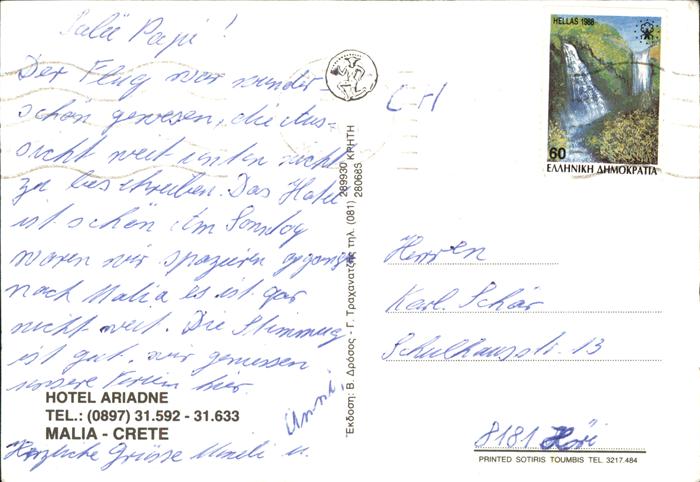 Salü Papi!
Der Flug war wunder-
schön gewesen, die Aus-
sicht weit unten nicht
zu beschreiben. Das Hotel
ist schön Am Sonntag
waren wir spazieren gegangen
nach Malia es ist gar
nicht weit. Die Stimmung
ist gut, wir geniessen
unsere Ferien hier.
HOTEL ARIADNE
TEL.: (0897) 31.592 - 31.633
MALIA - CRETE
Herzliche Grüsse u.
Anni
Έκδοση: Β. Δρόσος - Γ. Τραχανατζής τηλ. (081) 289930 ΚΡΗΤΗ
280685
HELLAS 1988
60
ΕΛΛΗΝΙΚΗ ΔΗΜΟΚΡΑΤΙΑ
Herren
Karl Schär
Schulhausstr. 13
8181 Höri
PRINTED SOTIRIS TOUMBIS TEL. 3217.484